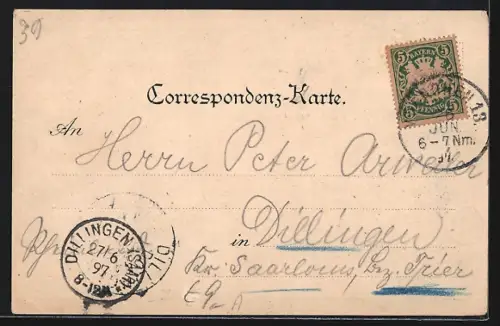 39
BAYERN
5 5
5 PFENNIG 5
13.
JUN.
6-7 Nm.
97
Correspondenz-Karte.
An
Herrn Peter
in Dillingen
Kr. Saarlouis, Bz. Trier
DILLINGEN (SAAR)
27/6
97
8-12N
DIL